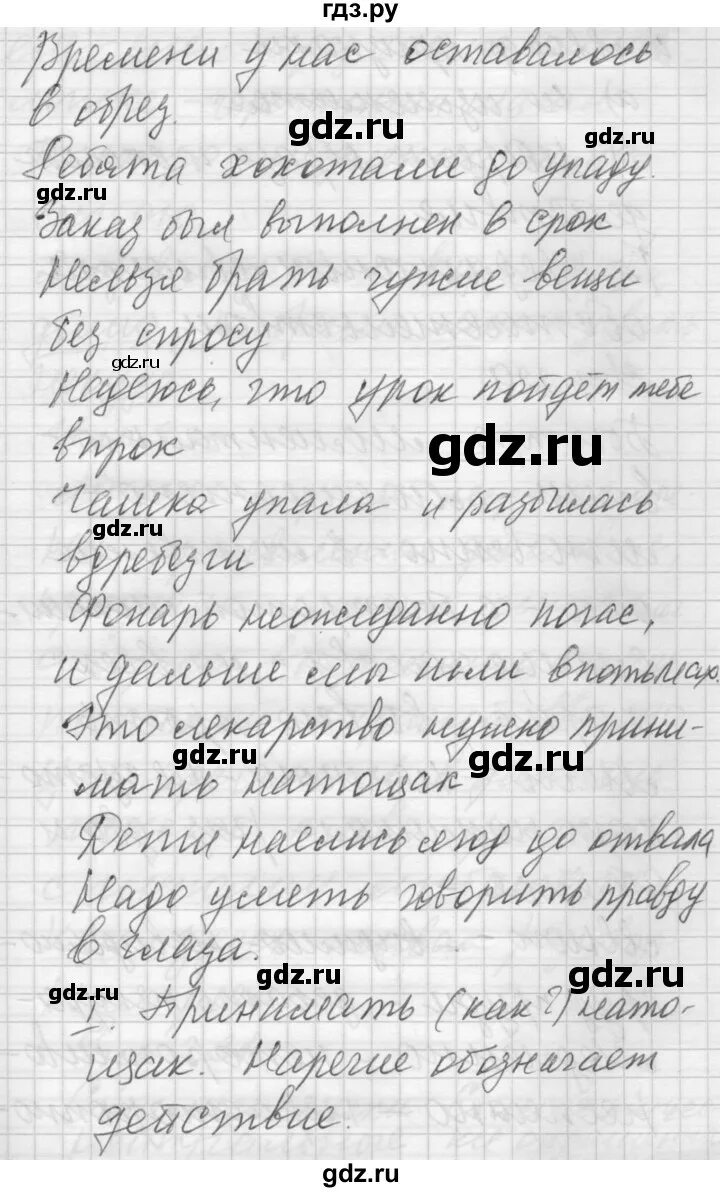 гдз.ру
Времени у нас оставалось
в обрез.
gdz.ru
gdz.ru
Ребята хохотали до упаду.
gdz.ru
Заказ был выполнен в срок
Нельзя брать чужие вещи
без спросу
gdz.ru
Надеюсь, что урок пойдёт тебе
впрок
gdz.ru
Чашка упала и разбилась
gdz.ru
вдребезги
Фонарь неожиданно погас,
и дальше мы шли впотьмах.
Это лекарство нужно прини-
gdz.ru
gdz.ru
мать натощак
Дети наелись ягод до отвала
Надо уметь говорить правду
в глаза.
gdz.ru
gdz.ru
gdz.ru
1. Принимать (как?) нато-
щак. Наречие обозначает
действие.
gdz.ru